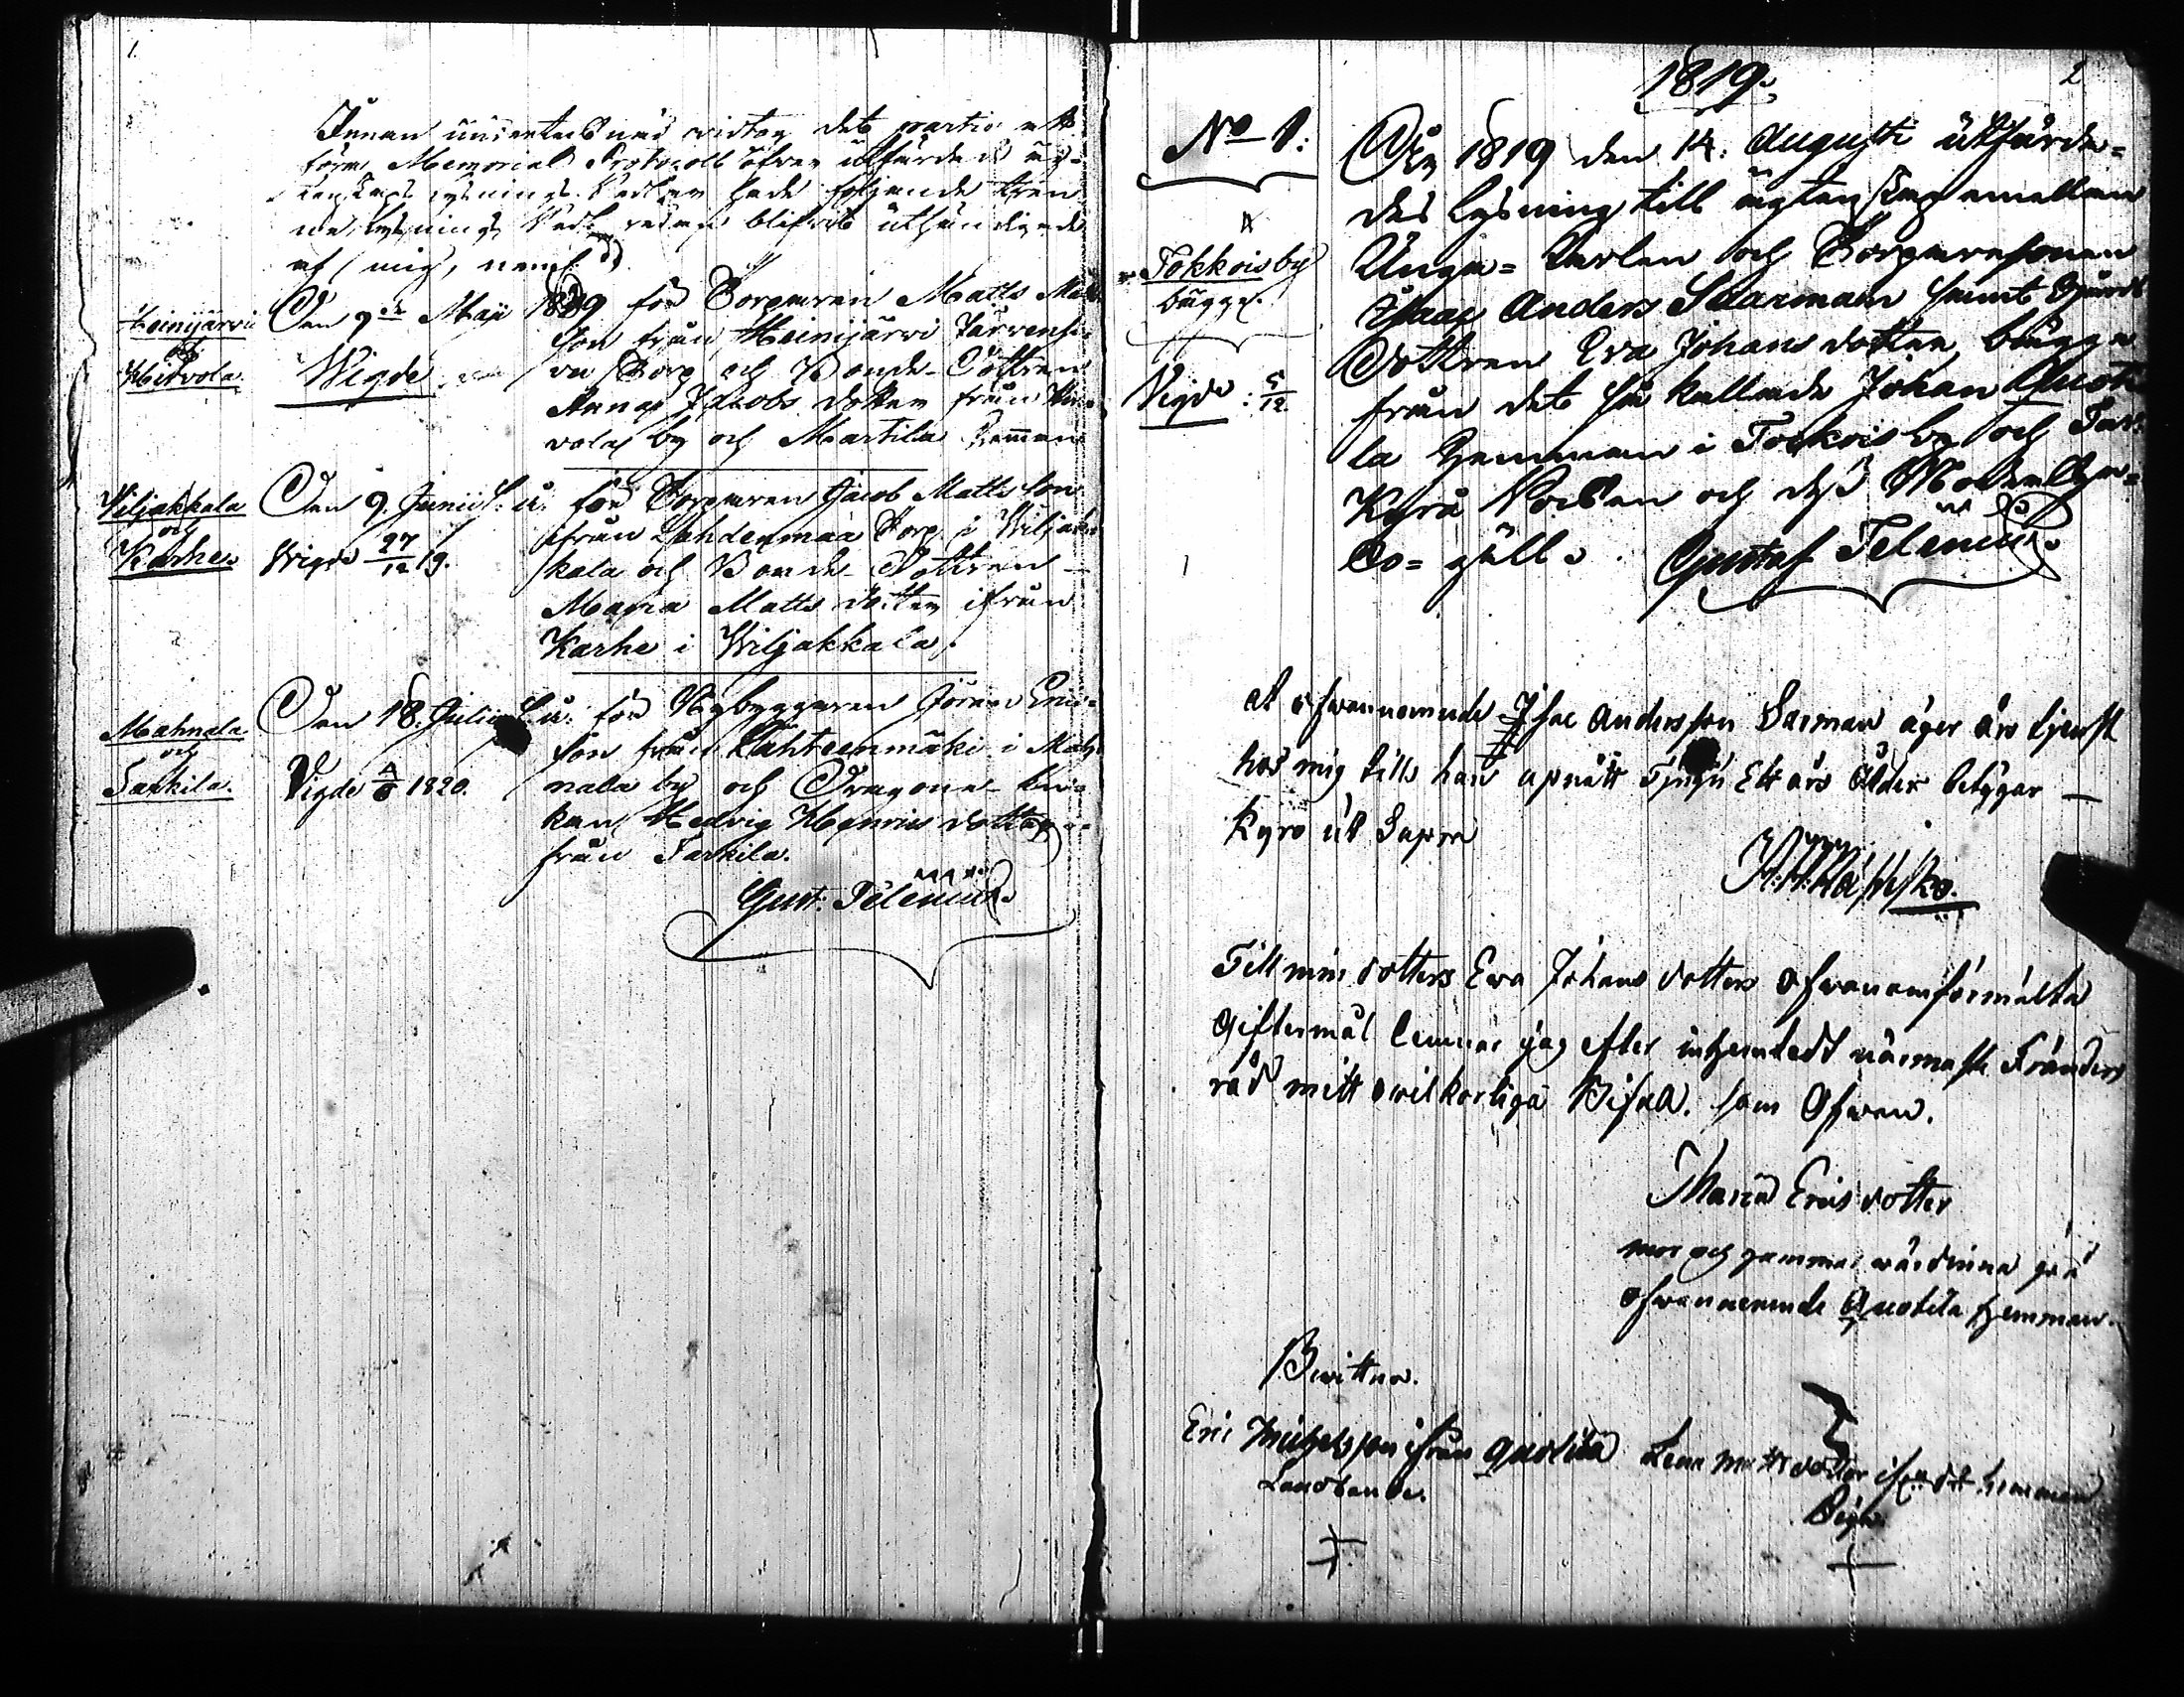 1.
Innan undertecknad vidtog det partie att
föra Memorial Protocoll öfver utfärdade äg-
tenskaps lysnings Sedlar hade följande tren-
ne lysnings Sedlar redan blifvit uthändigade
af mig, neml.
Heinijärvi
och
Hirvola
Den 9de Maji 1819 för Torparen Matts Matts
son från Heinijärvi Järvensi-
vu Torp och Bonde-Dottren
Anna Jacobs dotter från Hir-
vola by och Martila Hemman
Wigde
Viljakkala
och
Karhe.
Den 9. Junii s. å. för Torparen Jacob Matts son
ifrån Lahdenmaa Torp i Wiljak-
kala och Bonde-Dottren
Maria Matts dotter ifrån
Karhe i Wiljakkala.
Wigde 27/12 19.
Mahnala
och
Sarkila.
Den 18. Julii s. å. för Nybyggaren Jöran Erics
son från Lähteenmäki i Mah-
nala by och Dragone-
kan Hedvig Henrics dotter
från Sarkila.
Vigde 1820.
Gust: Telenius.
2
1819.
No 1:
Tokkois by
bägge.
Vigde: 5/12
År 1819 den 14. Augusti utfärda-
des Lysning till ägtenskap emellan
Unga-Karlen och Torparesonen
Isaac Anders Saarman samt
Dottren Eva Johans dotter, bägge
från det så kallade Johan Quoti-
la Hemman i Tockois by och Tav:
Kyrö Socken och dess Moderkyr-
ko-gäll.
Gustaf Telenius
At ofvannemnde Isac Andersson Sarman äger års tjenst
hos mig tills han upnått Tjugu Ett års Ålder betygar —
Kyro ut Supra
Till min dotters Eva Johans dotters ofvanomförmälta
Giftermål lemnar jag efter inhemtadt närmaste Fränders
råd mitt ovilkorliga Bifall. som Ofvan.
Maria Erics dotter
mor och gammal värdinna på
ofvannemnde Quotila Hemman.
Bevittna.
Eric Michelsson ifrån Quotila
Landbonde.
Lena Matts dotter ifrån det hemman
Piga